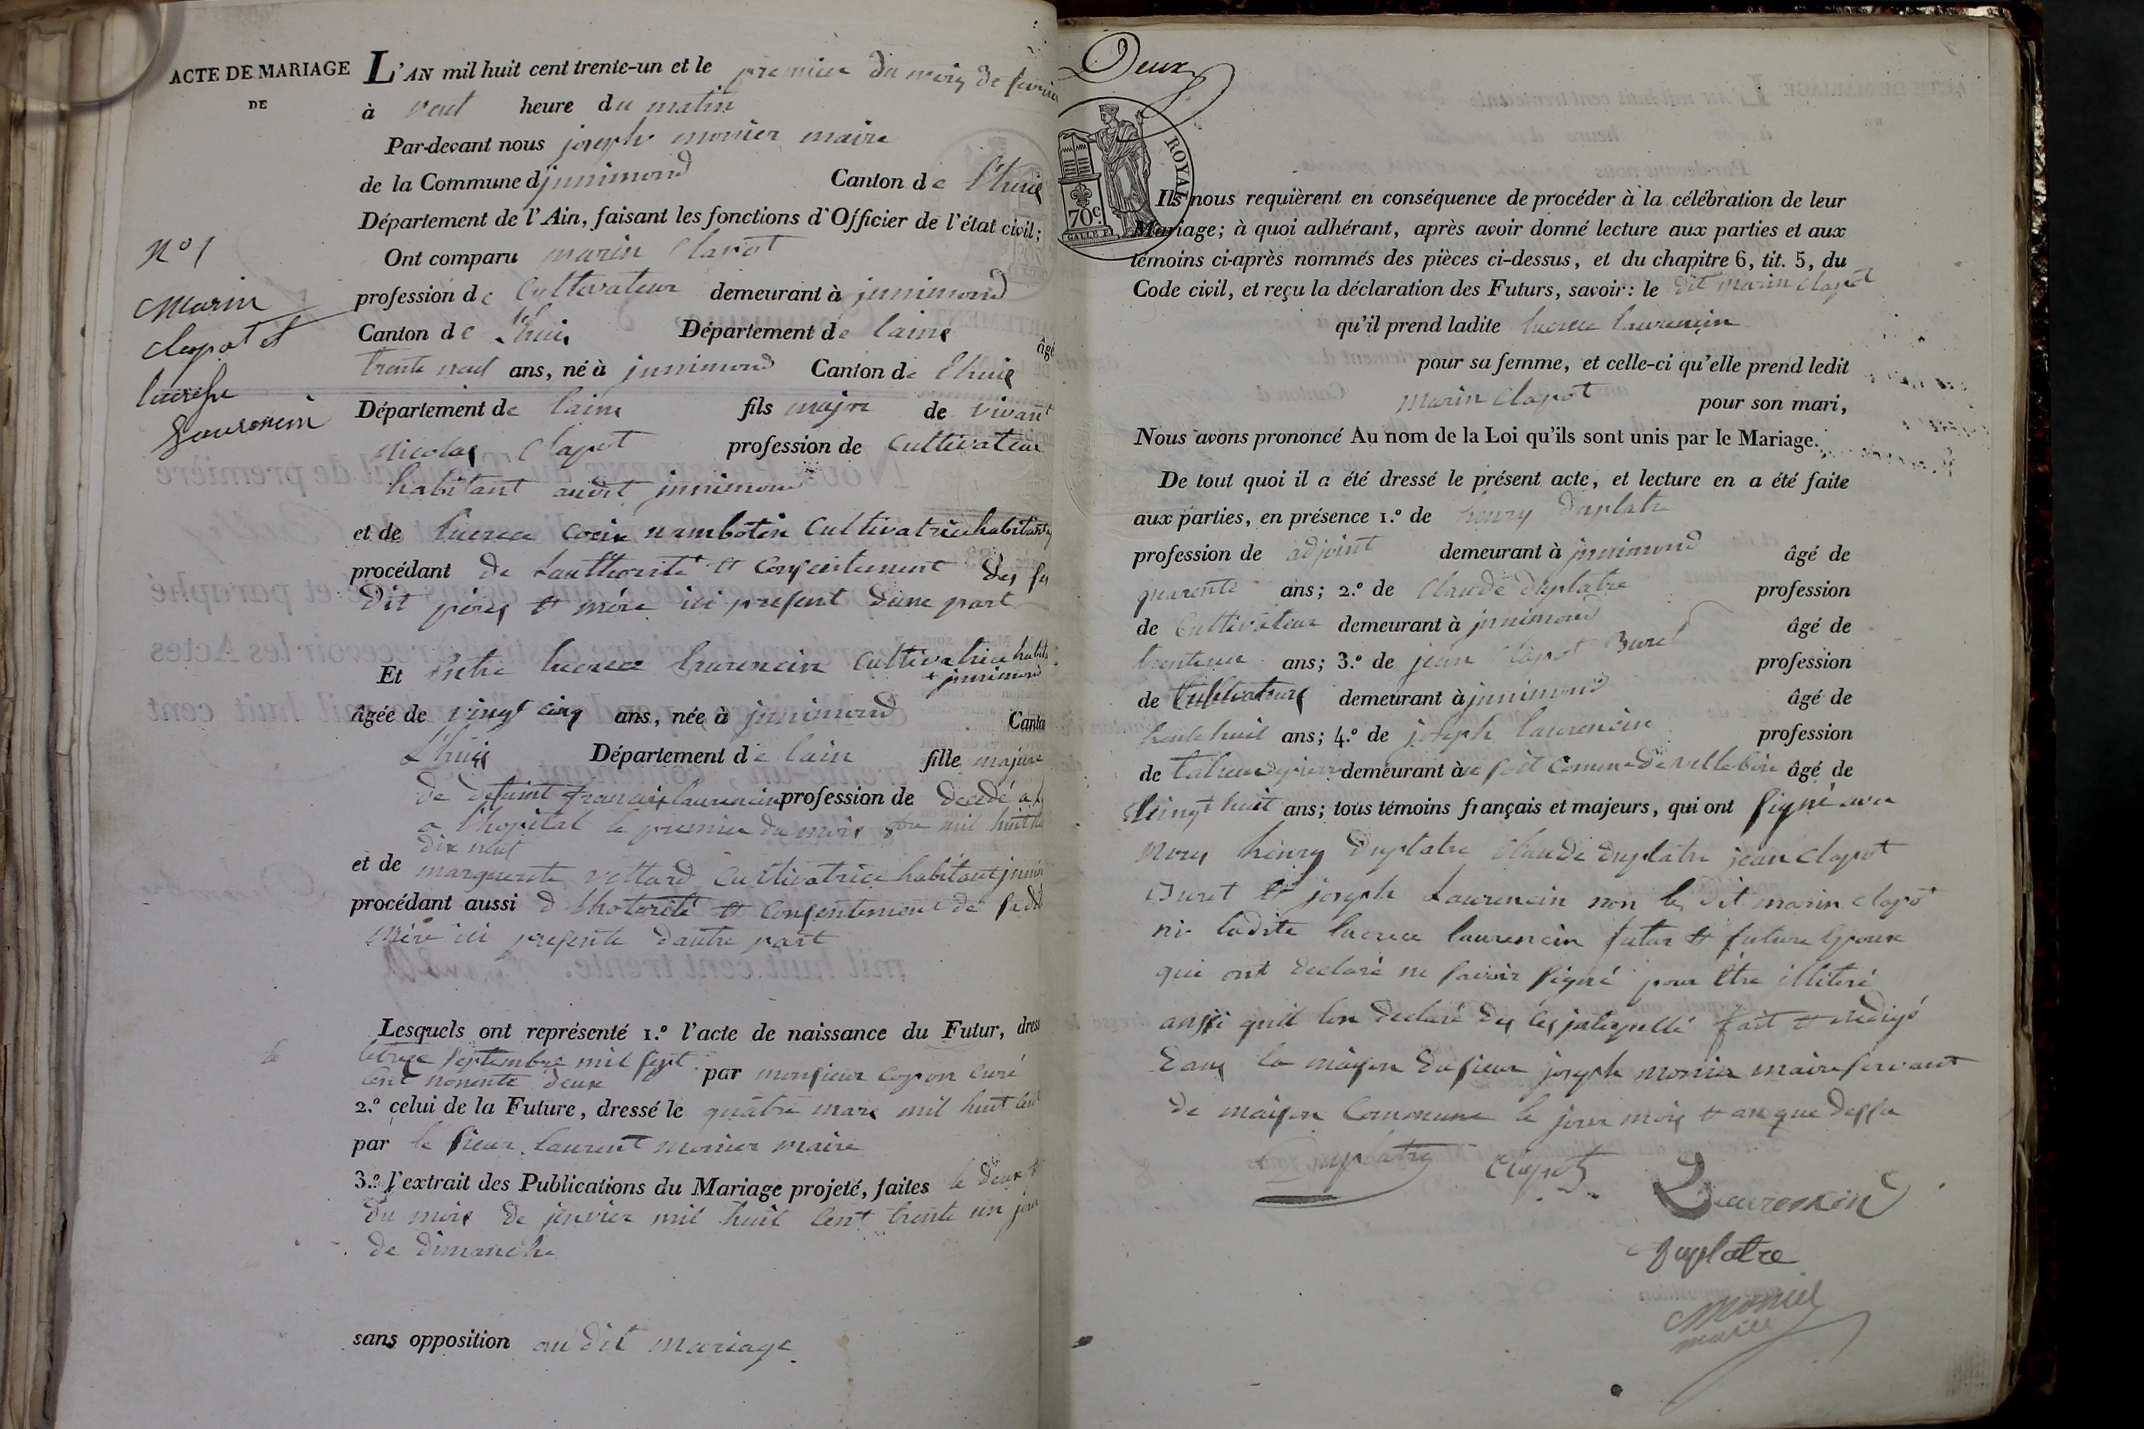 ACTE DE MARIAGE
DE
N° 1
Marin
Clapot et
lucresse
Laurencin
L'AN mil huit cent trente-un et le premier du mois de fevrier
à neuf heure du matin
Par-devant nous joseph monier maire
de la Commune djnnimond Canton de Lhuis
Département de l'Ain, faisant les fonctions d'Officier de l'état civil;
Ont comparu marin Clapot
profession de Cultivateur demeurant à jnnimond
Canton de Lhuis Département de laine âgé
trente neuf ans, né à jnnimond Canton de Lhuis
Département de laine fils majeur de vivant
nicolas Clapot profession de Cultivateur
habitant audit jnnimond
et de lucrece nambotin Cultivatrice habitante
procédant de Lauthorité et Consentement des su
dit péres et mére ici present dune part
Et lucrece laurencin Cultivatrice habit
a jnnimond
âgée de vingt cinq ans, née à jnnimond Canto
Lhuis Département de lain fille majeure
de defunt francois laurencin profession de décédé a
a lhopital le premier du mois mil huit
dix neuf
et de marguerite vettard Cultivatrice habitant jnnim
procédant aussi d Lhotorité et Consentement de sadit
mére ici presente dautre part
Lesquels ont représenté 1.º l'acte de naissance du Futur, dress
le septembre mil sept
cent nonente deux par monsieur copon Curé
2.º celui de la Future, dressé le quatre mars mil huit cent
par le sieur laurent monier maire
3.º l'extrait des Publications du Mariage projeté, faites le deux
du mois de janvier mil huit Cent trente un jour
de dimanche
sans opposition au dit mariage
Deux
ROYAL
70c
GALLE F.
Ils nous requièrent en conséquence de procéder à la célébration de leur
Mariage; à quoi adhérant, après avoir donné lecture aux parties et aux
témoins ci-après nommés des pièces ci-dessus, et du chapitre 6, tit. 5, du
Code civil, et reçu la déclaration des Futurs, savoir: le dit marin clapot
qu'il prend ladite lucrece laurencin
pour sa femme, et celle-ci qu'elle prend ledit
marin Clapot pour son mari,
Nous avons prononcé Au nom de la Loi qu'ils sont unis par le Mariage.
De tout quoi il a été dressé le présent acte, et lecture en a été faite
aux parties, en présence 1.º de henry Duplatre
profession de adjoint demeurant à jnnimond âgé de
quarente ans; 2.º de Claude Duplatre profession
de Cultivateur demeurant à jnnimond âgé de
ans; 3.º de jean Clapot Buret profession
de Cultivateur demeurant à jnnimond âgé de
trente huit ans; 4.º de joseph laurencin profession
de demeurant à Commune de vellebois âgé de
vingt huit ans; tous témoins français et majeurs, qui ont signé avec
nous henry Duplatre Claude duplatre jean Clapot
Buret et joseph Laurencin non le dit marin Clapot
ni ladite lucrece laurencin futur et future Epoux
qui ont declaré ne savoir signé pour être illiteré
ainsi quil lon declaré fait et redigé
Dans la maison du sieur joseph monier maire servant
de maison Commune le jour mois et an que dessu
Duplatre
Clapot
Laurencin
Duplatre
Monier
maire